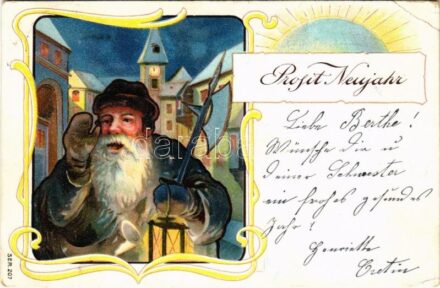 Prosit Neujahr
Liebe Berthe!
Wünsche die u
deiner Schwester
ein frohes gesundes
Jahr!
Henriette
Cretin
SER. 207
darabanth